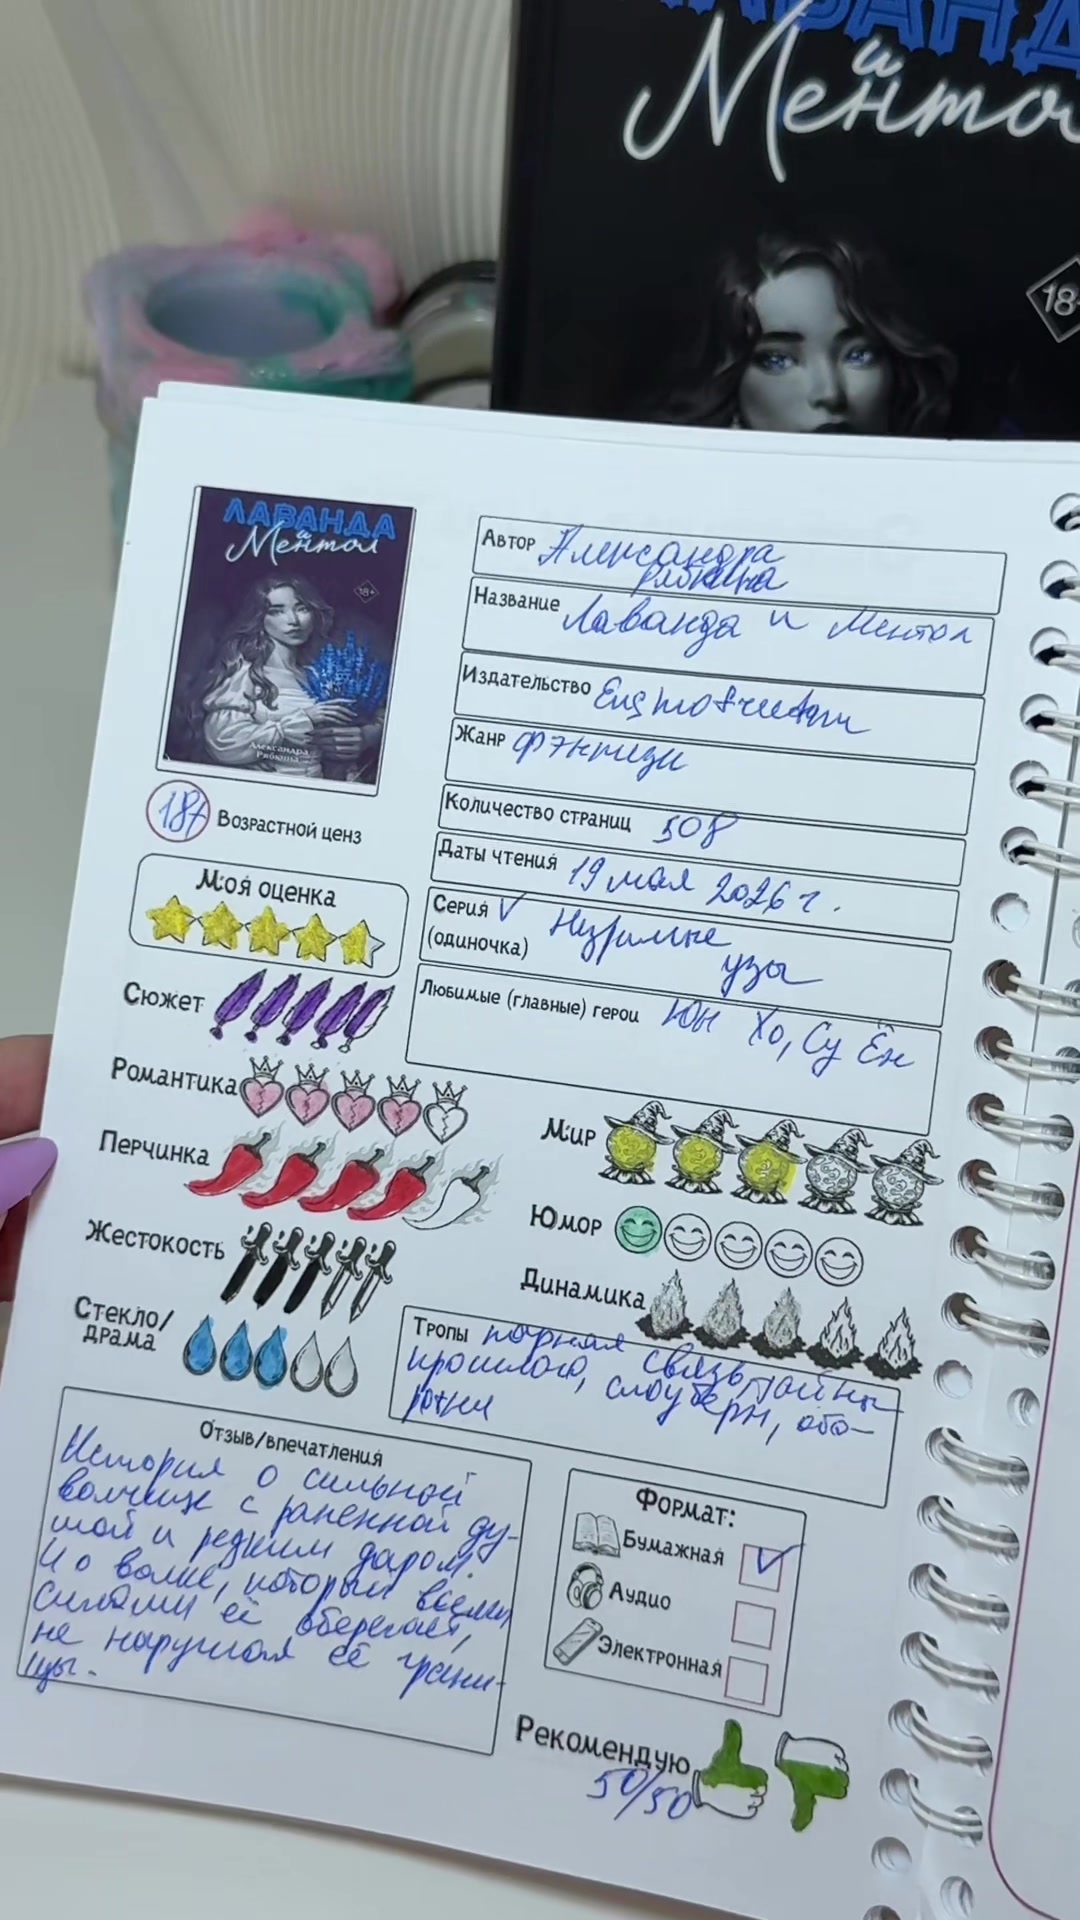 ЛАВАНДА
и
Ментол
18+
ЛАВАНДА
и
Ментол
18+
Александра
Рябкина
18+ Возрастной ценз
Моя оценка
Сюжет
Романтика
Перчинка
Жестокость
Стекло/
драма
Автор Александра
Рябкина
Название Лаванда и Ментол
Издательство
Жанр фэнтези
Количество страниц 508
Даты чтения 19 мая 2026 г.
Серия V Незримые
(одиночка) узы
Любимые (главные) герои Юн Хо, Су Ён
Мир
Юмор
Динамика
Тропы парная связь, тайны
прошлого, слоуберн, обо-
ротни
Отзыв/впечатления
История о сильной
волчице с раненной ду-
шой и редким даром.
И о волке, который всеми
силами её оберегает,
не нарушая её грани-
цы.
Формат:
Бумажная V
Аудио
Электронная
Рекомендую
50/50